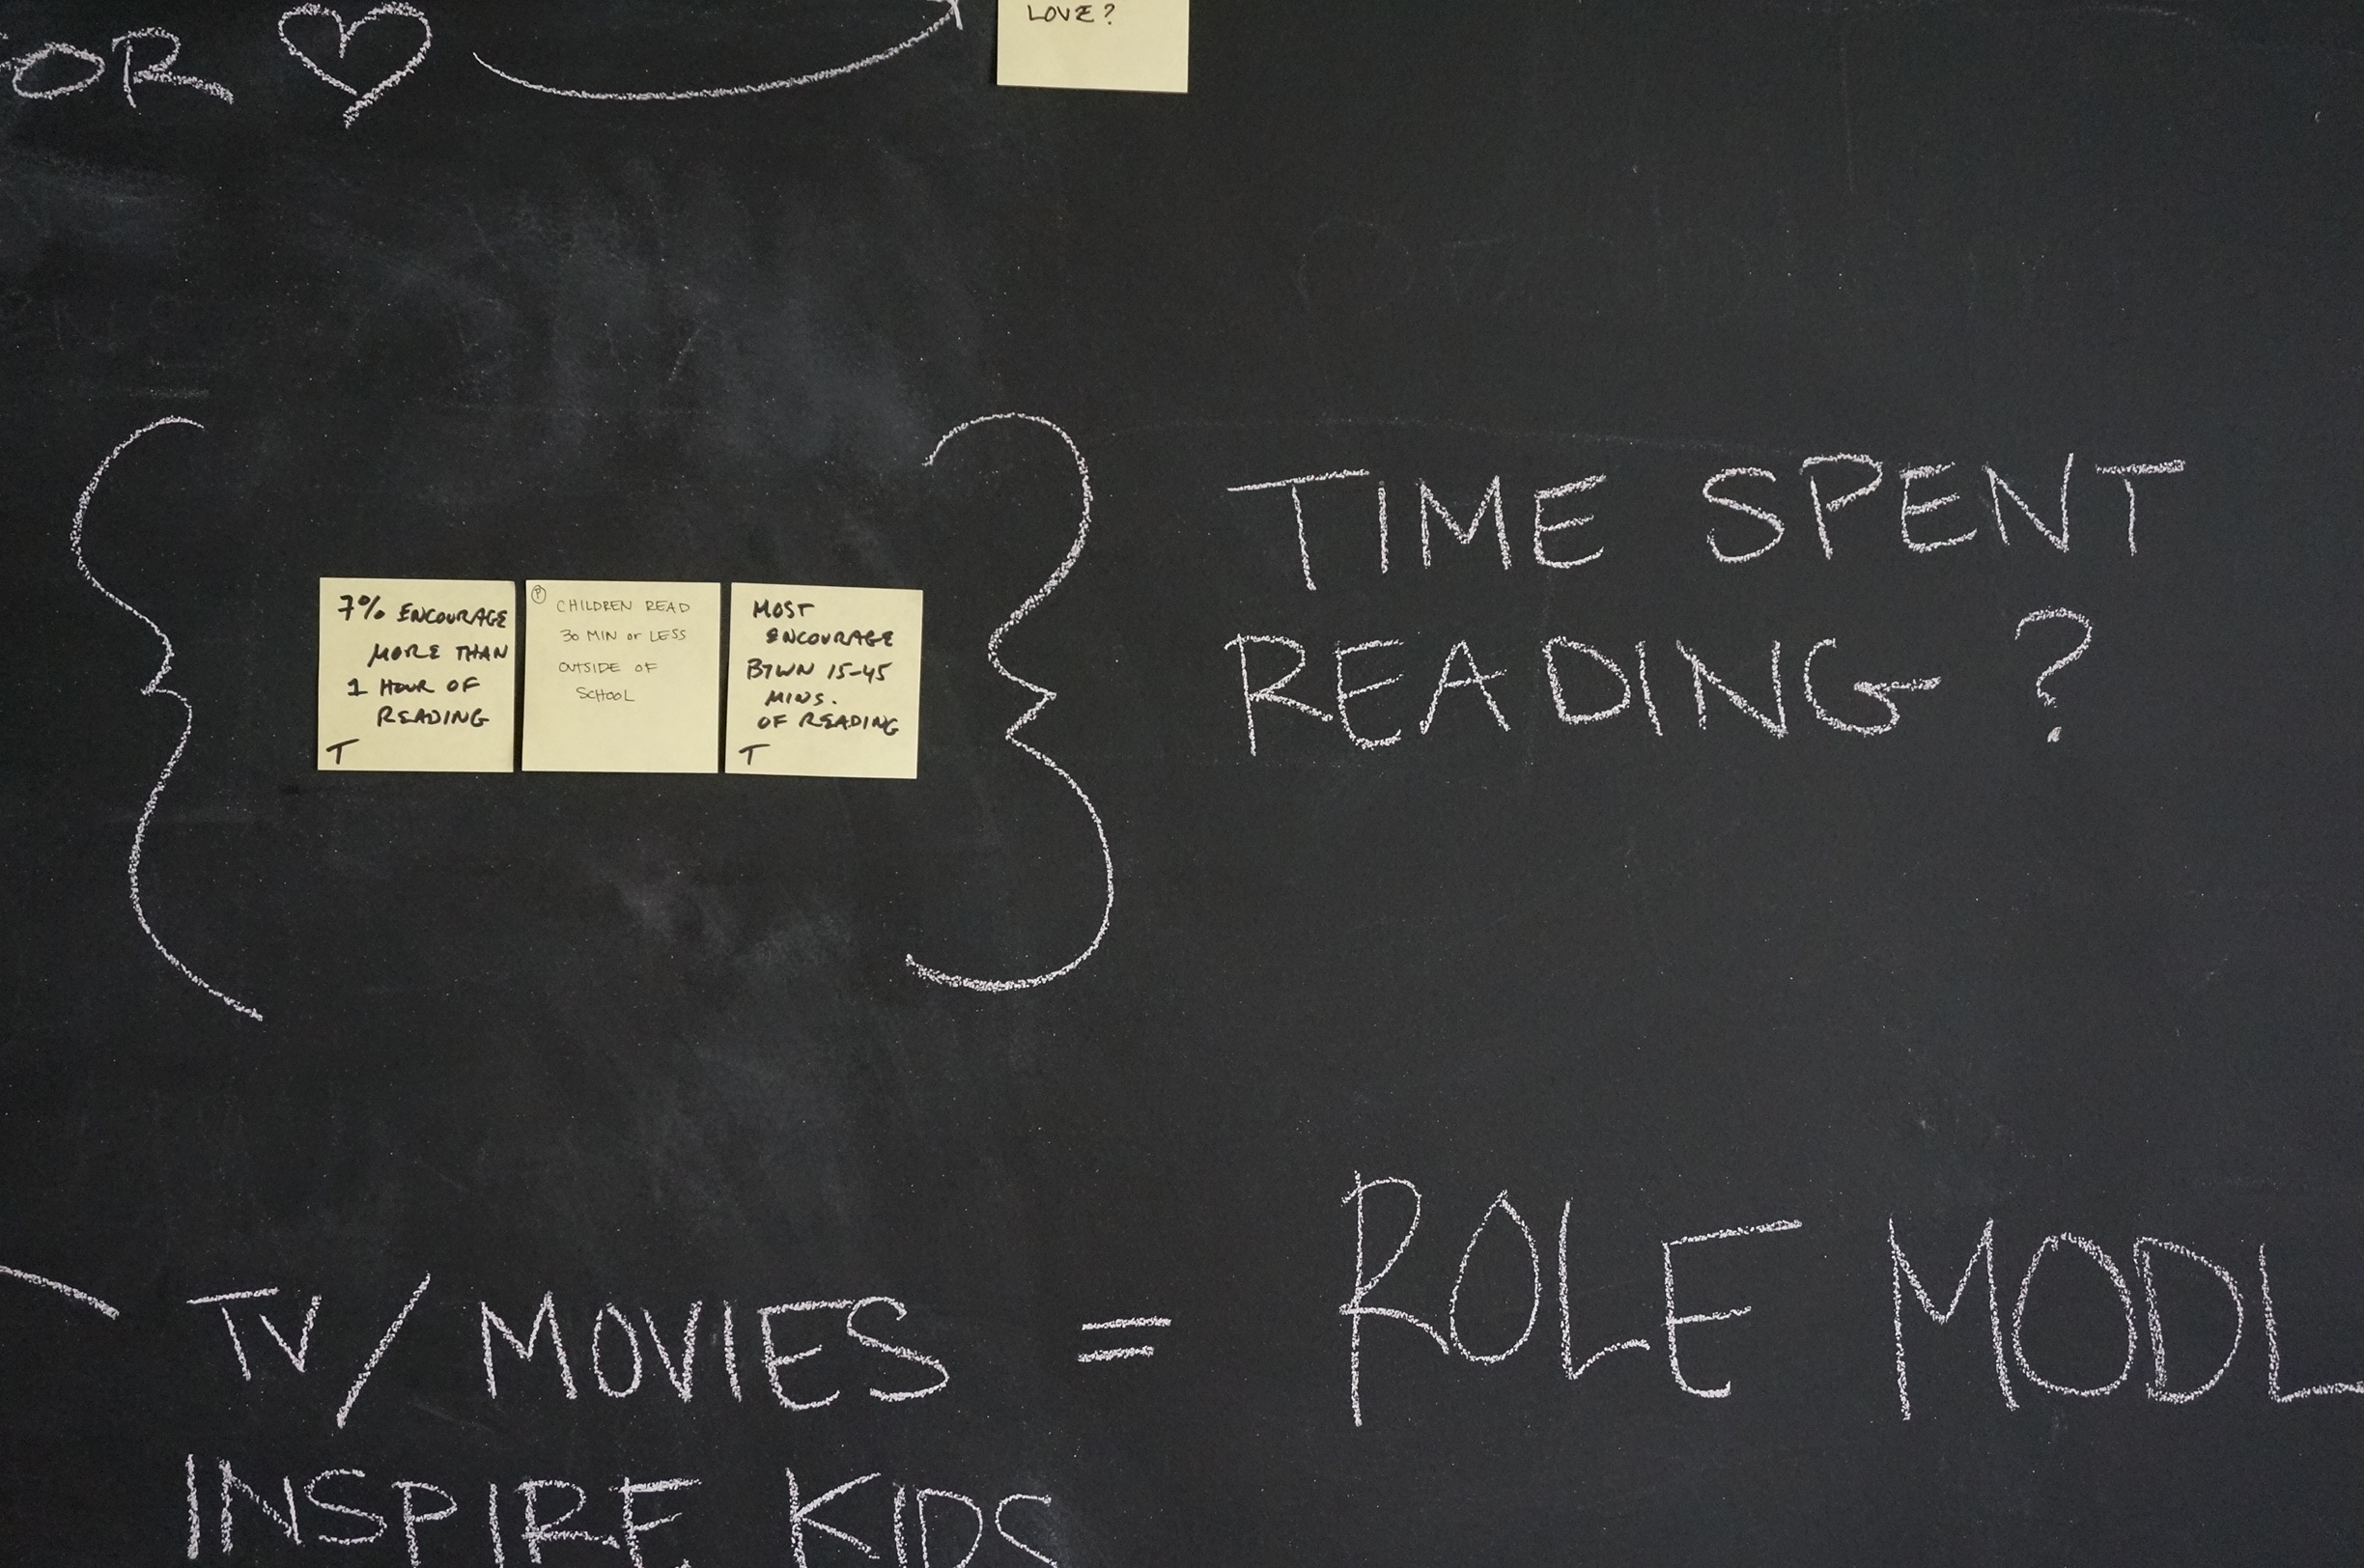 FOR
LOVE?
7% ENCOURAGE
MORE THAN
1 HOUR OF
READING
T
P
CHILDREN READ
30 MIN or LESS
OUTSIDE OF
SCHOOL
MOST
ENCOURAGE
BTWN 15-45
MINS.
OF READING
T
TIME SPENT
READING?
TV/MOVIES = ROLE MODL
INSPIRE KIDS